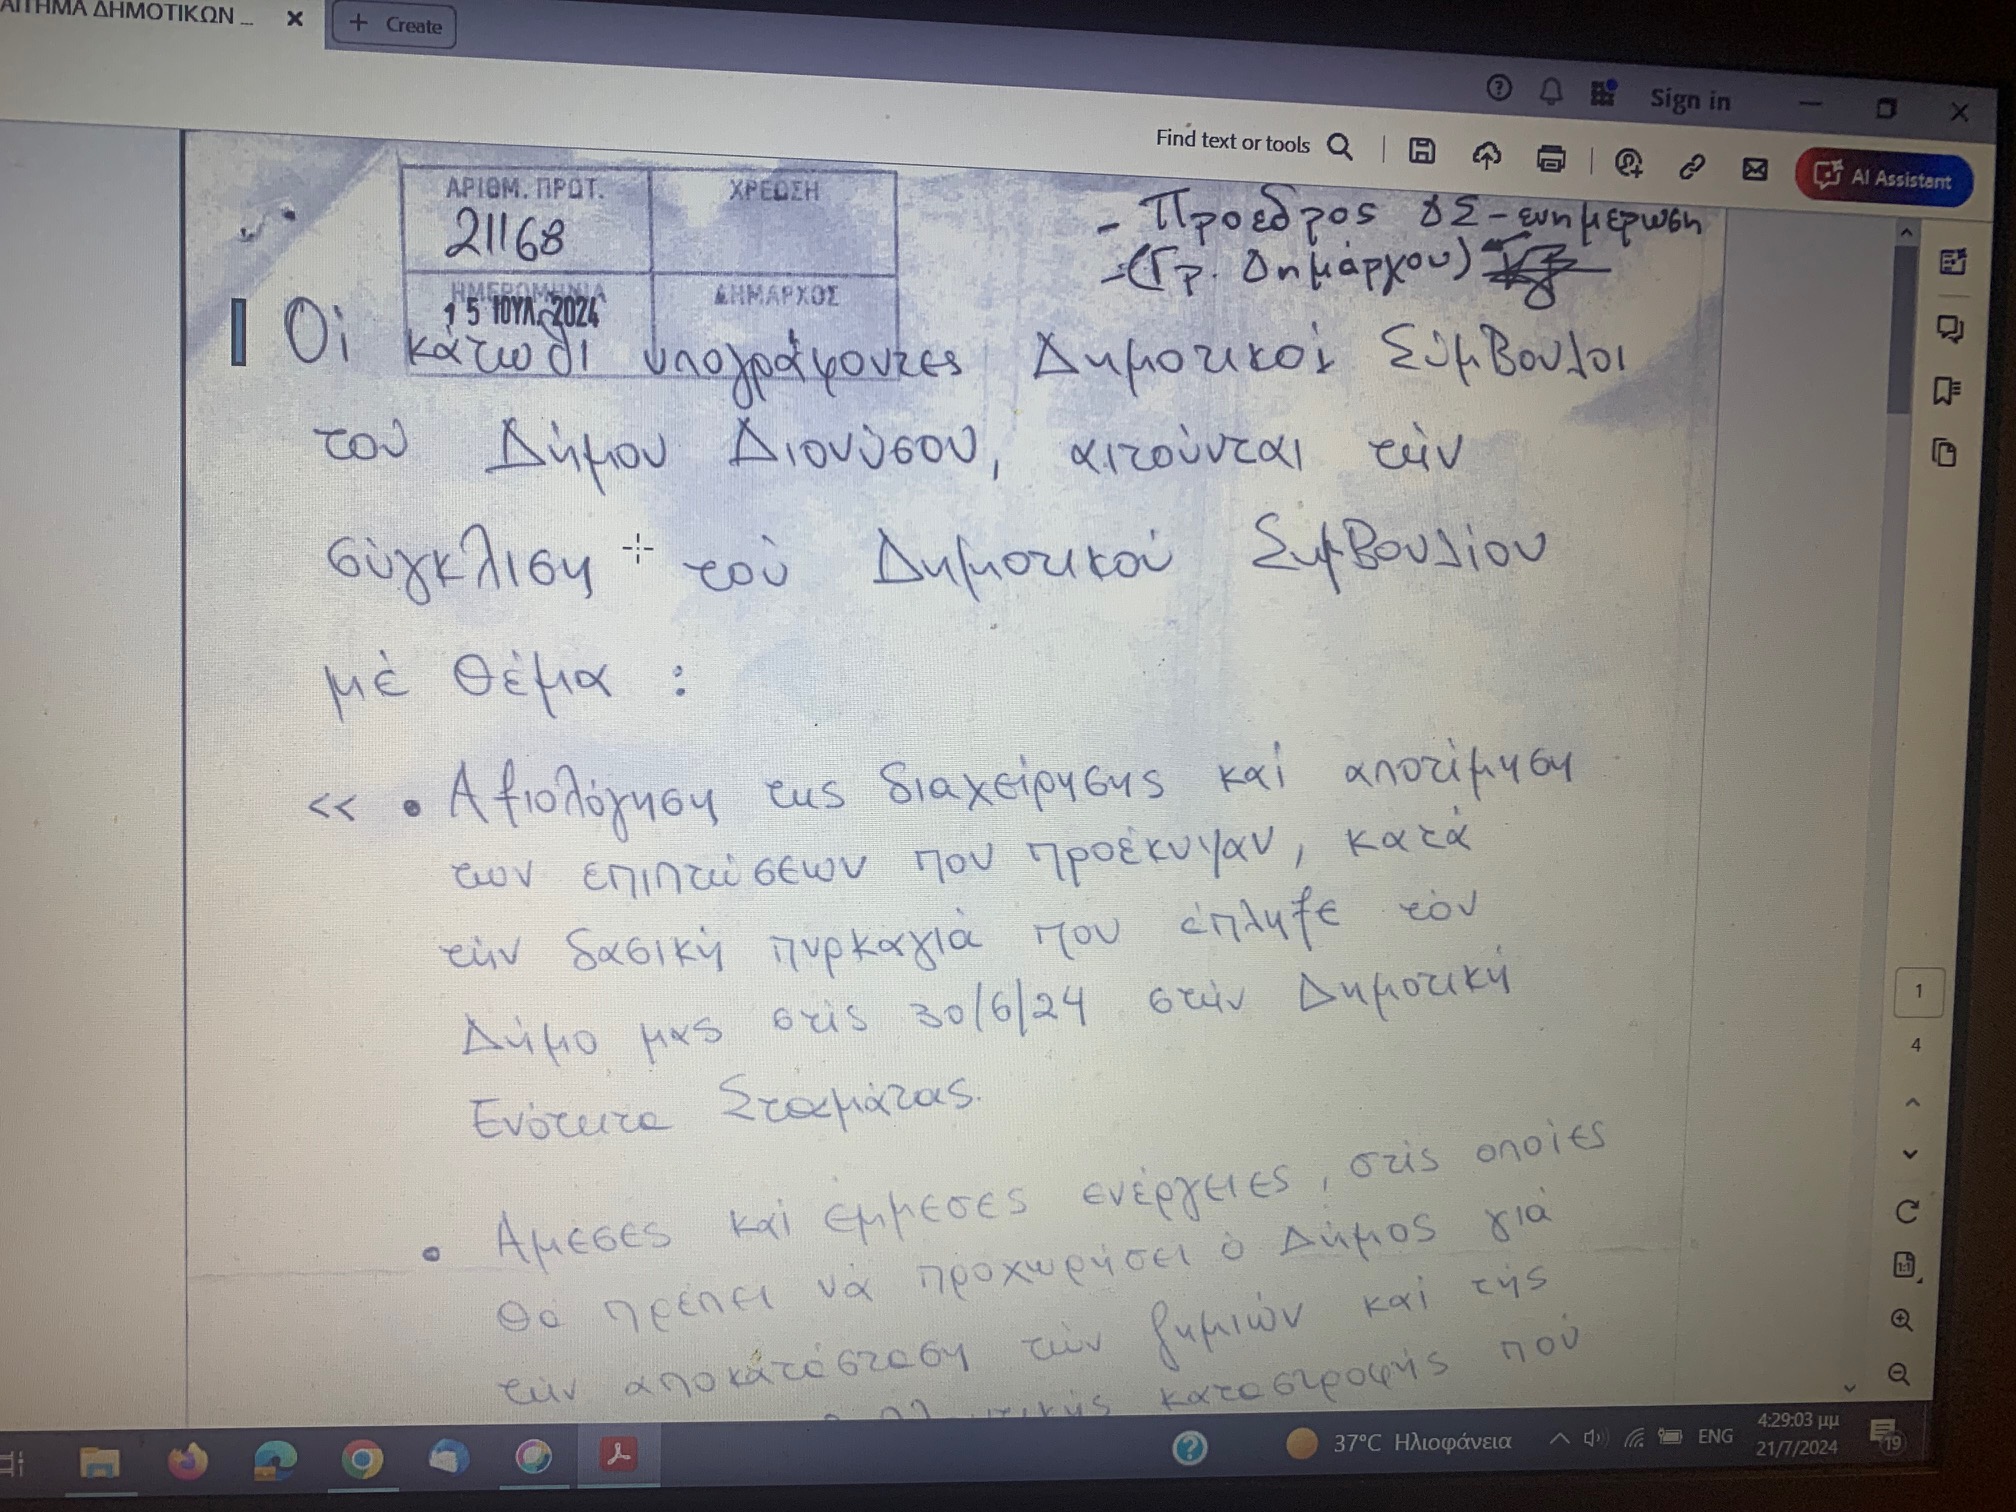 ΑΙΤΗΜΑ ΔΗΜΟΤΙΚΩΝ ...
+ Create
Sign in
Find text or tools
AI Assistant
ΑΡΙΘΜ. ΠΡΩΤ.
21168
ΧΡΕΩΣΗ
ΗΜΕΡΟΜΗΝΙΑ
15 ΙΟΥΛ. 2024
ΔΗΜΑΡΧΟΣ
- Πρόεδρος ΔΣ - ενημέρωση
- (Γρ. Δημάρχου)
Οἱ κάτωθι υπογράφοντες Δημοτικοί Σύμβουλοι
τοὺ Δήμου Διονύσου, αιτούνται τὴν
σύγκλιση τοὺ Δημοτικού Συμβουλίου
μὲ θέμα :
<< • Αξιολόγηση της διαχείρησης καὶ αποτίμηση
των επιπτώσεων που προέκυψαν, κατά
τὴν δασική πυρκαγιὰ που έπληξε τὸν
Δήμο μας στὶς 30/6/24 στὴν Δημοτική
Ενότητα Σταμάτας.
• Αμεσες καὶ έμμεσες ενέργειες, στὶς οποίες
θα πρέπει νὰ προχωρήσει ὁ Δήμος γιὰ
τὴν αποκατάσταση τὼν ζημιών καὶ τὴς
καταστροφής ποὺ
1
4
37°C Ηλιοφάνεια
ENG
4:29:03 μμ
21/7/2024
19